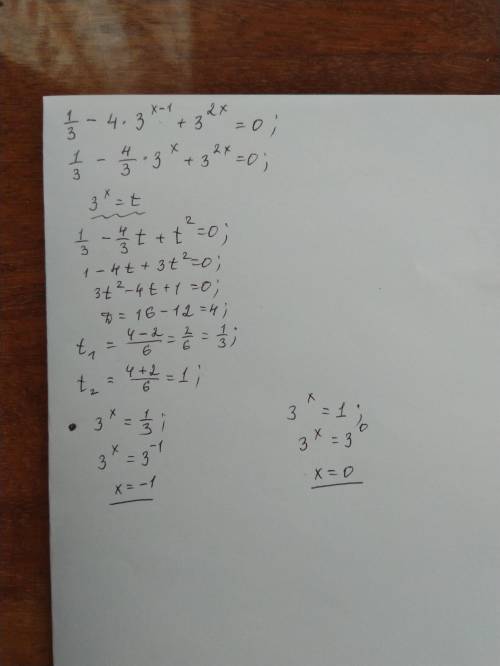 1/3 − 4 · 3^(x−1) + 3^(2x) = 0;
1/3 − 4/3 · 3^x + 3^(2x) = 0;
3^x = t
1/3 − 4/3 t + t^2 = 0;
1 − 4t + 3t^2 = 0;
3t^2 − 4t + 1 = 0;
D = 16 − 12 = 4;
t_1 = (4−2)/6 = 2/6 = 1/3;
t_2 = (4+2)/6 = 1;
• 3^x = 1/3;
3^x = 3^(−1)
x = −1
3^x = 1;
3^x = 3^0
x = 0